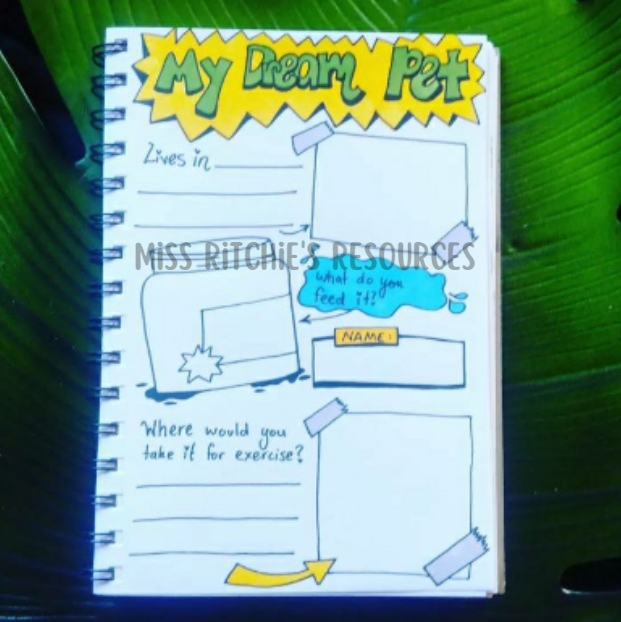 My Dream Pet
Lives in
MISS RITCHIE'S RESOURCES
What do you
feed it?
NAME:
Where would you
take it for exercise?